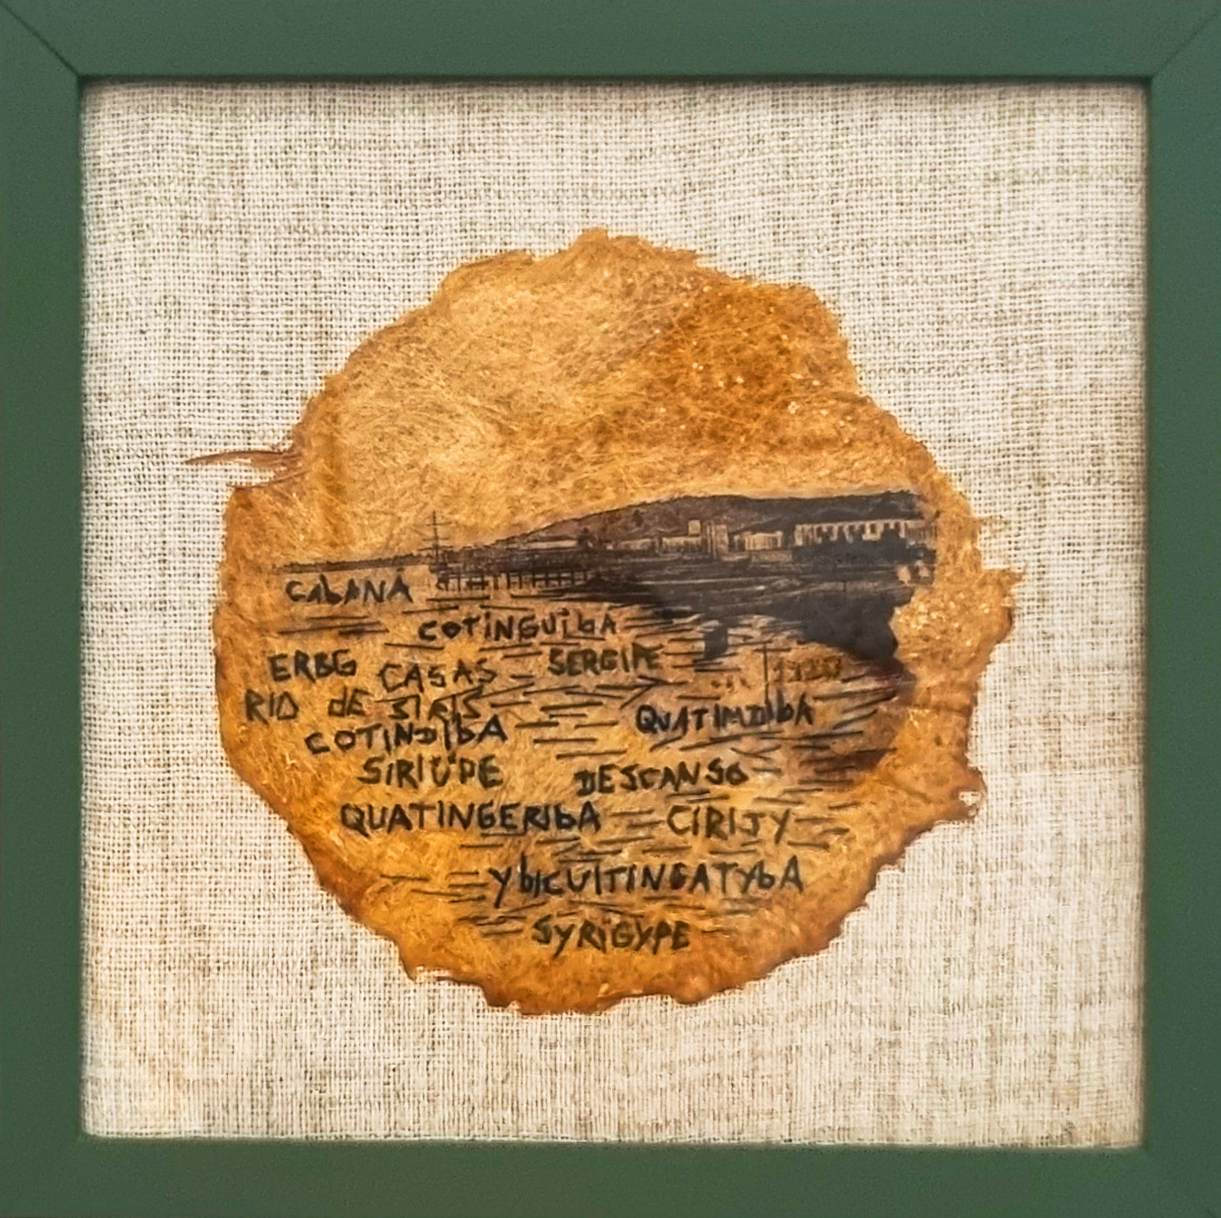 CALANA
COTINGUIBA
ERBG CASAS SERGIPE
RIO DE SIRIS
QUATIMDIBA
COTINDIBA
SIRIÚPE DESCANSO
QUATINGERIBA CIRIJY
YBICUITINGATYBA
SYRIGYPE